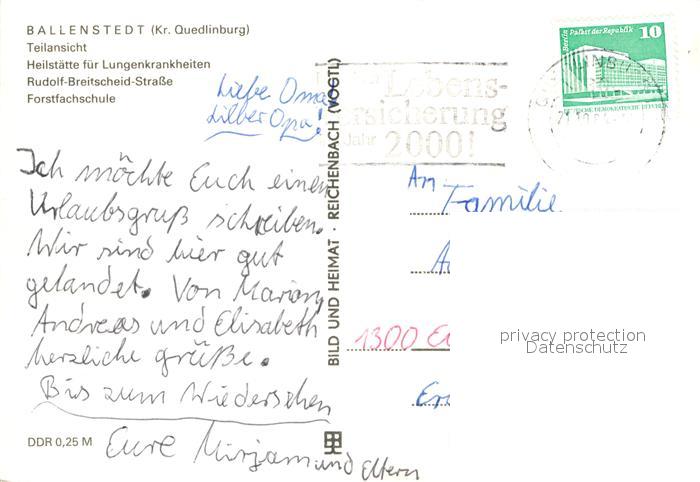 BALLENSTEDT (Kr. Quedlinburg)
Teilansicht
Heilstätte für Lungenkrankheiten
Rudolf-Breitscheid-Straße
Forstfachschule
Liebe Oma,
Lieber Opa!
Ich möchte Euch einen
Urlaubsgruß schreiben.
Wir sind hier gut
gelandet. Von Marion,
Andreas und Elisabeth
herzliche grüße.
Bis zum Wiedersehen
Eure Mirjam und Eltern
DDR 0,25 M
BILD UND HEIMAT · REICHENBACH (VOGTL)
Lebens-
ersicherung
Jahr 2000!
Berlin Palast der Republik 10
DEUTSCHE DEMOKRATISCHE REPUBLIK
An Familie
1300
privacy protection
Datenschutz